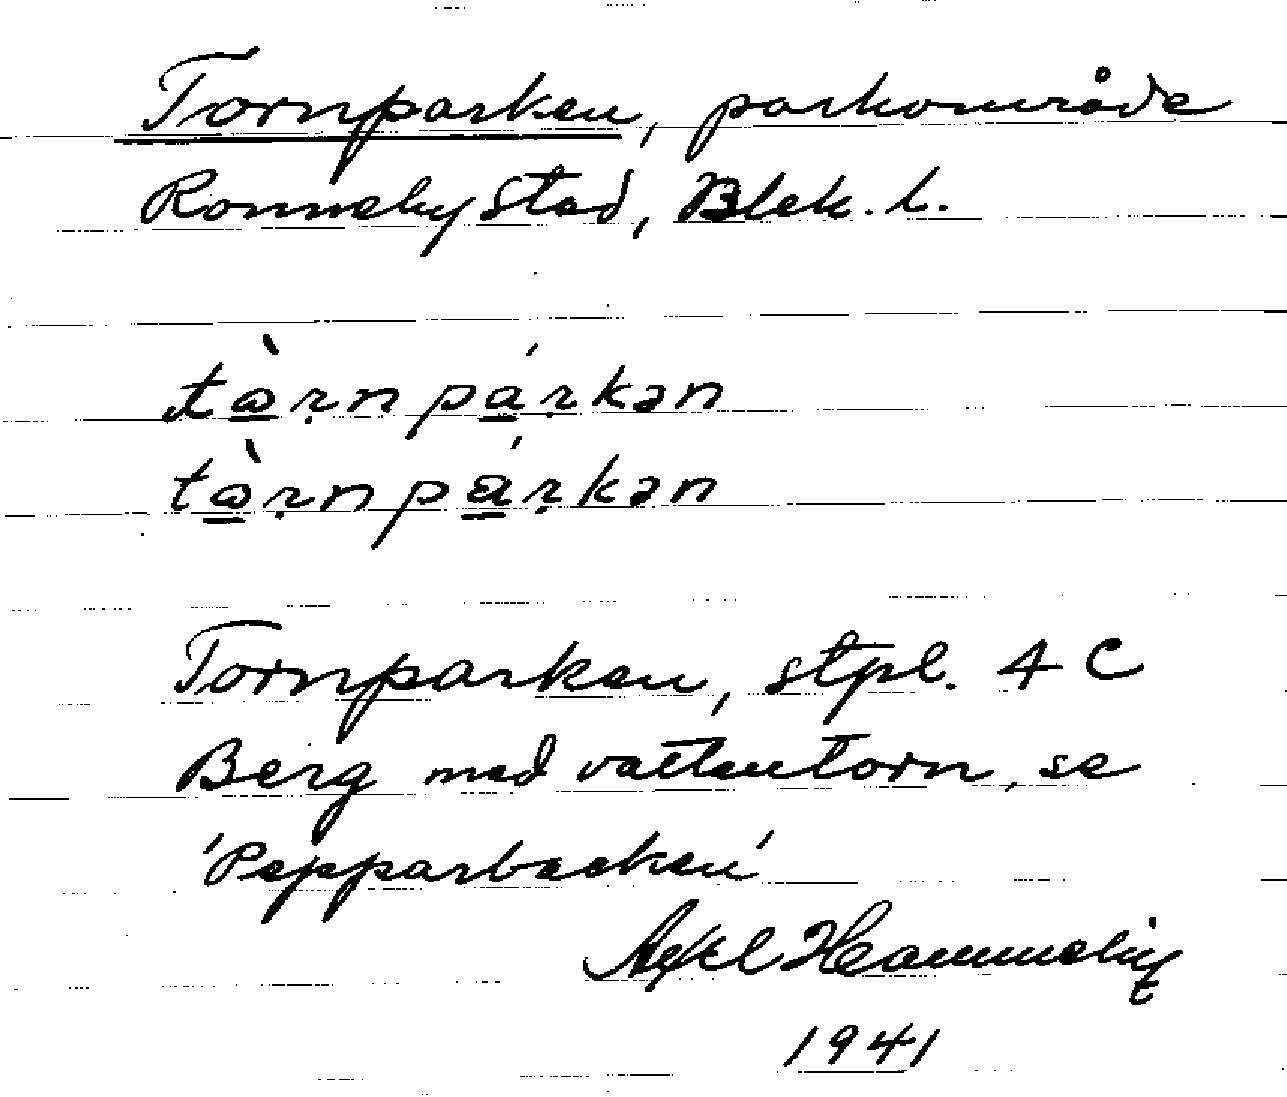 Tornparken, parkområde
Ronneby stad, Blek. l.
tɷ̀rnpárkən
tɷ̀rnpárkən
Tornparken, stpl. 4 C
Berg med vattentorn, se
'Pepparbacken'
Axel
1941